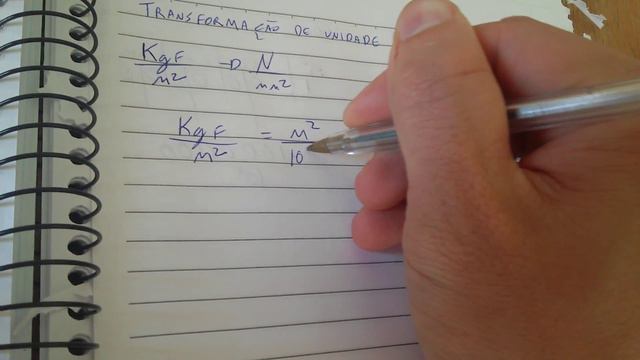 TRANSFORMAÇÃO DE UNIDADE
KgF/m² → N/mm²
KgF/m² = m²/10